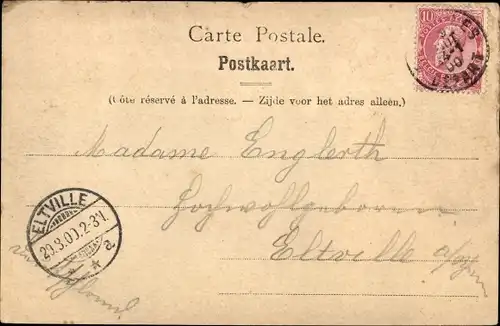 Carte Postale.
Postkaart.
(Côte réservé à l'adresse. — Zijde voor het adres alleen.)
Madame Englerth
Hochwohlgeboren
Eltville a/Rhein
ELTVILLE
20.3.00.2-3N.
* * a
10